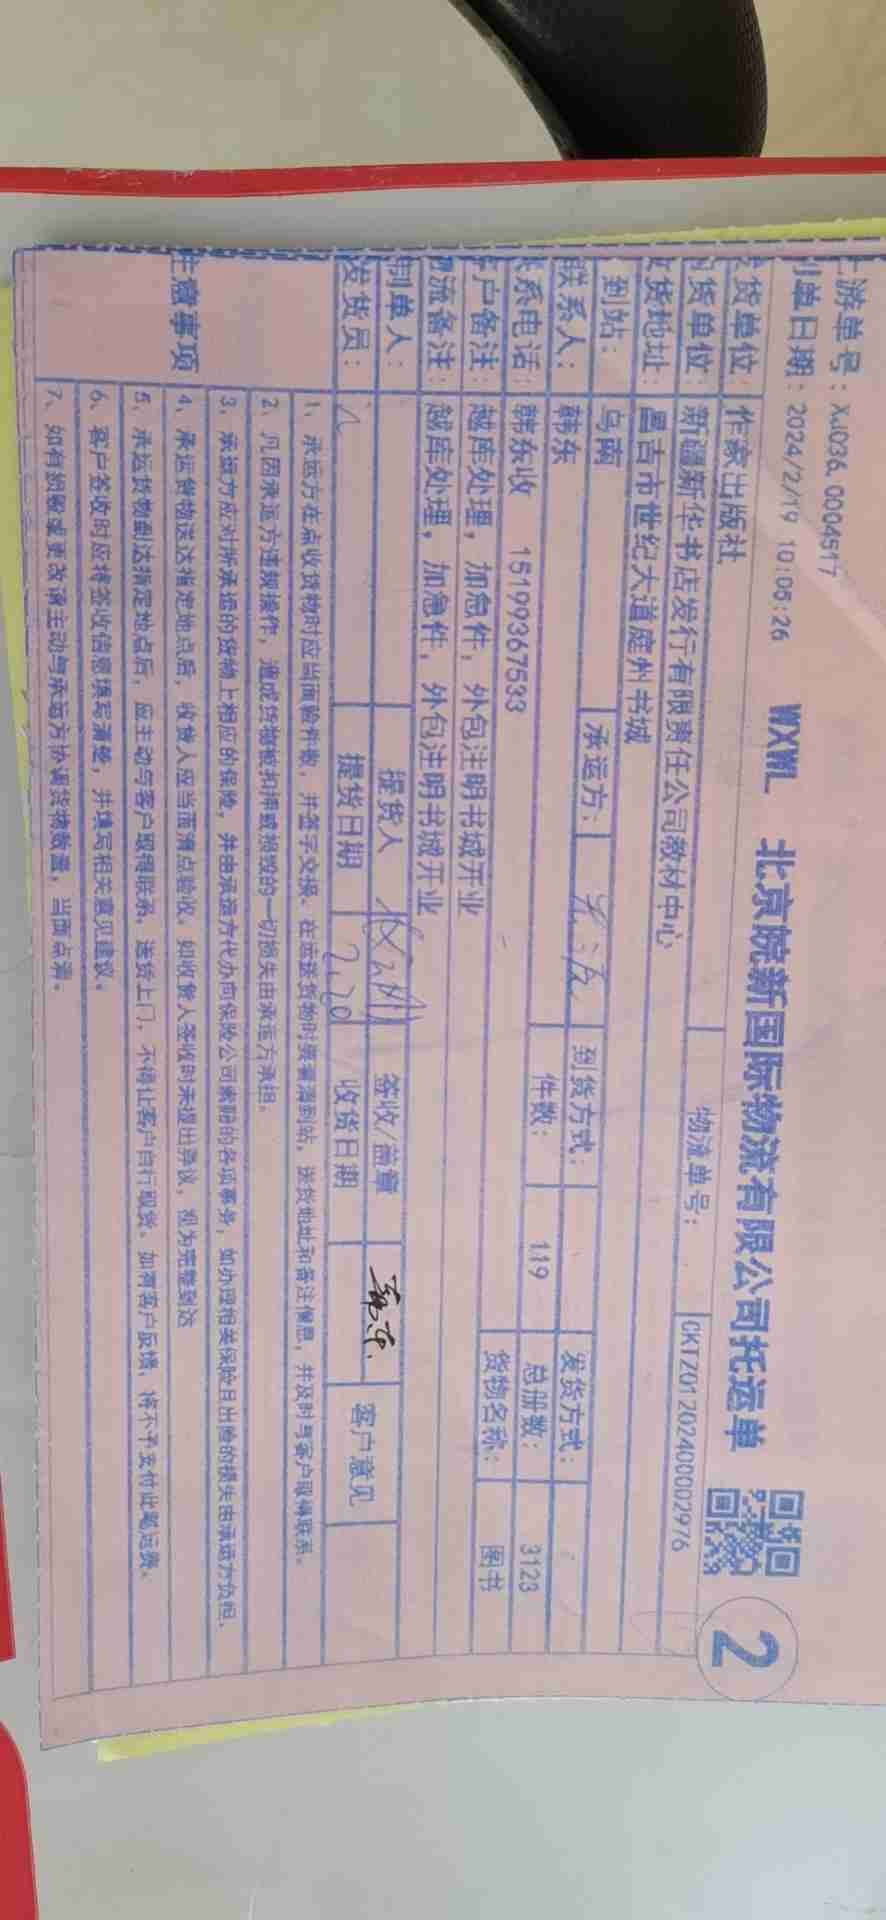 上游单号：XJ036.0004517
制单日期：2024/2/19 10:05:26 WXWL 北京皖新国际物流有限公司托运单 2
发货单位：作家出版社 物流单号： CKTZ0120240002976
收货单位：新疆新华书店发行有限责任公司教材中心
收货地址：昌吉市世纪大道庭州书城
到站：乌南 承运方： 到货方式： 发货方式：
联系人：韩东 件数：119 总册数：3123
联系电话：韩东收 15199367533 货物名称：图书
客户备注：越库处理，加急件，外包注明书城开业
物流备注：越库处理，加急件，外包注明书城开业
制单人： 提货人 签收/盖章 韩东 客户意见
发货员： 提货日期 2.20 收货日期
注意事项
1、承运方在点收货物时应当面验件数，并签字交接。在运送货物时要看清到站，送货地址和备注信息，并及时与客户取得联系。
2、凡因承运方违规操作，造成货物被扣押或损毁的一切损失由承运方承担。
3、承运方应对所承运的货物上相应的保险，并由承运方代办向保险公司索赔的各项事务，如办理相关保险且出险的损失由承运方负担。
4、承运货物送达指定地点后，收货人应当面清点验收。如收货人签收时未提出异议，视为完整到达
5、承运货物到达指定地点后，应主动与客户取得联系，送货上门，不得让客户自行取货。如有客户反馈，将不予支付此笔运费。
6、客户签收时应将签收信息填写清楚，并填写相关意见建议。
7、如有拆散或更改请主动与承运方协调货物数量，当面点清。